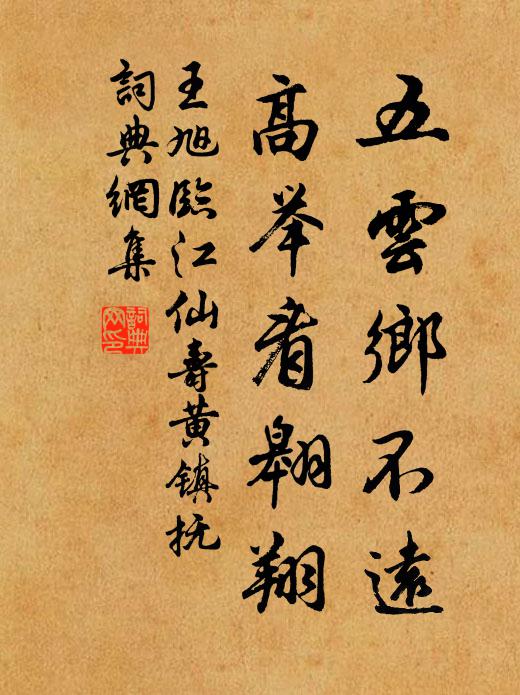 五雲鄉不遠
高举看翱翔
王旭臨江仙壽黄镇抚
詞典網集
詞典網印